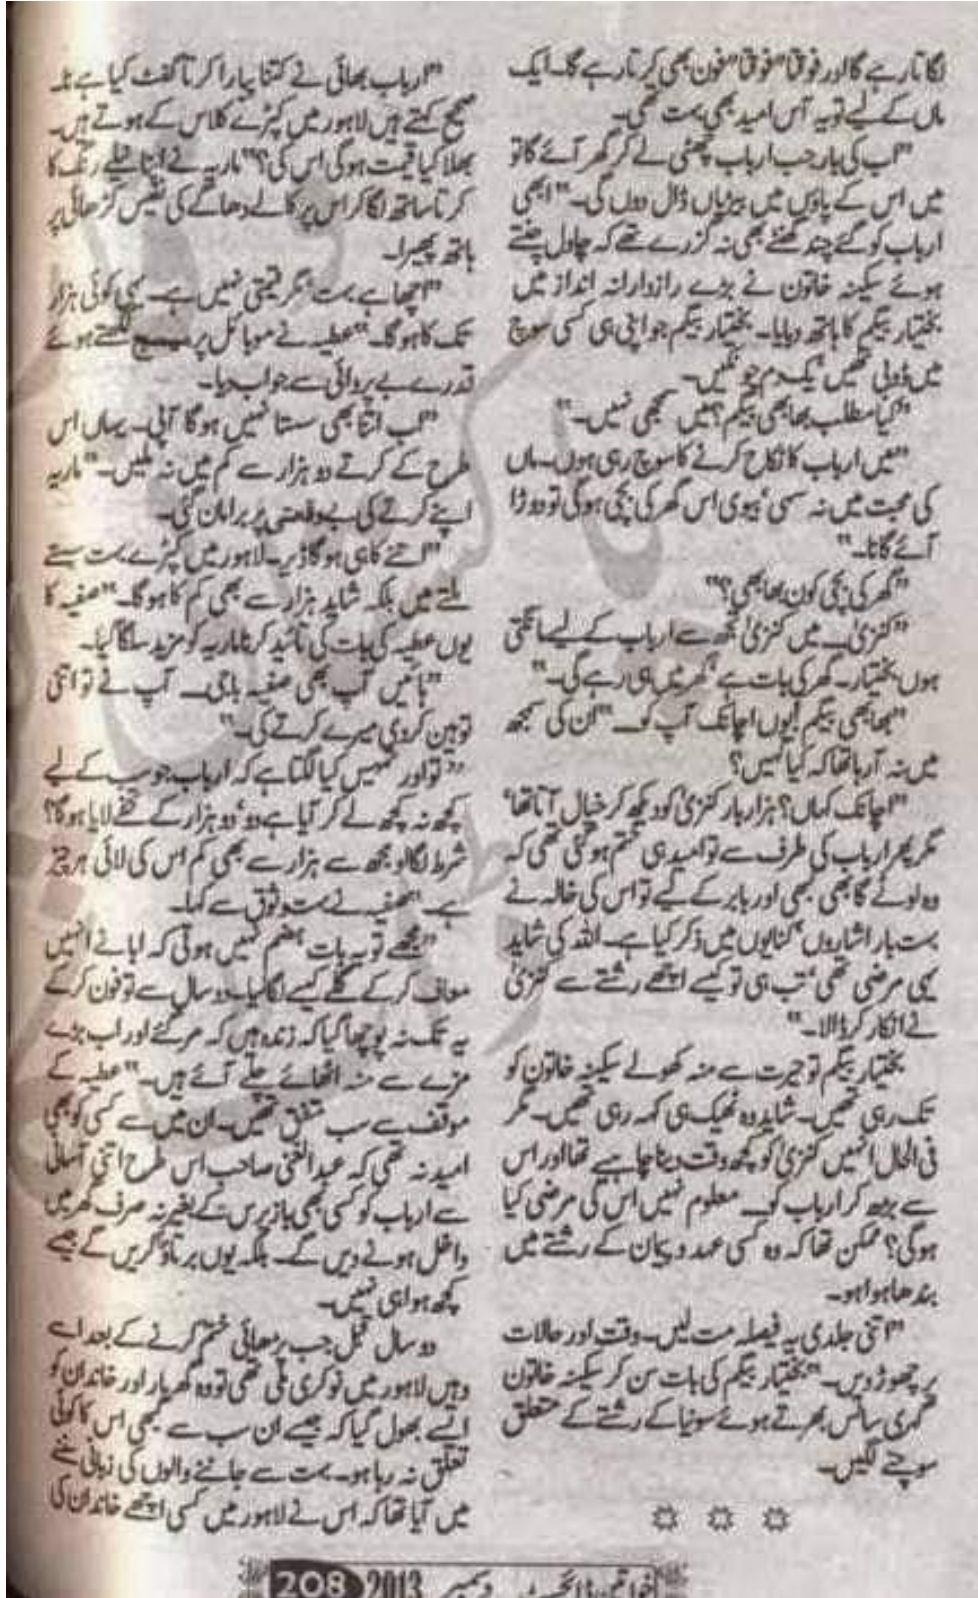 لگاتا رہے گا اور فوقتا" فوقتا" فون بھی کرتا رہے گا۔ ایک
ماں کے لیے تو یہ آس امید بھی بہت تھی۔
"اب کی بار جب ارباب چھٹی لے کر گھر آئے گا تو
میں اس کے پاؤں میں بیڑیاں ڈال دوں گی۔" ابھی
ارباب کو گئے چند گھنٹے بھی نہ گزرے تھے کہ چاول چنتے
ہوئے سکینہ خاتون نے بڑے رازدارانہ انداز میں
بختیار بیگم کا ہاتھ دبایا۔ بختیار بیگم جو اپنی ہی کسی سوچ
میں ڈوبی تھیں یک دم چونکیں۔
"کیا مطلب بھابھی بیگم؟ میں سمجھی نہیں۔"
"میں ارباب کا نکاح کرنے کا سوچ رہی ہوں۔ ماں
کی محبت میں نہ سہی، بیوی اس گھر کی بچی ہوگی تو دوڑا
آئے گا نا۔"
"گھر کی بچی کون بھابھی؟"
"کنزیٰ۔ میں کنزیٰ تجھ سے ارباب کے لیے مانگتی
ہوں بختیار۔ گھر کی بات ہے، گھر میں ہی رہے گی۔"
"بھابھی بیگم! یوں اچانک آپ کو۔" ان کی سمجھ
میں نہ آ رہا تھا کہ کیا کہیں؟
"اچانک کہاں؟ ہزار بار کنزیٰ کو دیکھ کر خیال آتا تھا،
مگر پھر ارباب کی طرف سے تو امید ہی ختم ہو گئی تھی کہ
وہ لوٹے گا بھی کبھی اور بابر کے لیے تو اس کی خالہ نے
بہت بار اشاروں، کنایوں میں ذکر کیا ہے۔ اللہ کی شاید
یہی مرضی تھی، تب ہی تو کیسے اچھے رشتے سے کنزیٰ
نے انکار کر ڈالا۔"
بختیار بیگم تو حیرت سے منہ کھولے سکینہ خاتون کو
تک رہی تھیں۔ شاید وہ ٹھیک ہی کہہ رہی تھیں۔ مگر
فی الحال انہیں کنزیٰ کو کچھ وقت دینا چاہیے تھا اور اس
سے بڑھ کر ارباب کو۔ معلوم نہیں اس کی مرضی کیا
ہوگی؟ ممکن تھا کہ وہ کسی عہد و پیمان کے رشتے میں
بندھا ہوا ہو۔
"اتنی جلدی یہ فیصلہ مت لیں۔ وقت اور حالات
پر چھوڑ دیں۔" بختیار بیگم کی بات سن کر سکینہ خاتون
گہری سانس بھرتے ہوئے سونیا کے رشتے کے متعلق
سوچنے لگیں۔
"ارباب بھائی نے کتنا پیارا کرتا گفٹ کیا ہے نا۔
صحیح کہتے ہیں لاہور میں کپڑے کلاس کے ہوتے ہیں۔
بھلا کیا قیمت ہوگی اس کی؟" ماریہ نے اپنا نیلے رنگ کا
کرتا ساتھ لگا کر اس پر کالے دھاگے کی نفیس کڑھائی پر
ہاتھ پھیرا۔
"اچھا ہے بہت، مگر قیمتی نہیں ہے۔ یہی کوئی ہزار
تک کا ہوگا۔" عطیہ نے موبائل پر میسج لکھتے ہوئے
قدرے بے پروائی سے جواب دیا۔
"اب اتنا بھی سستا نہیں ہوگا آپی۔ یہاں اس
طرح کے کرتے دو ہزار سے کم میں نہ ملیں۔" ماریہ
اپنے کرتے کی بے وقعتی پر برا مان گئی۔
"اتنے کا ہی ہوگا ڈیر۔ لاہور میں کپڑے بہت سستے
ملتے ہیں بلکہ شاید ہزار سے بھی کم کا ہوگا۔" صفیہ کا
یوں عطیہ کی بات کی تائید کرنا ماریہ کو مزید سلگا گیا۔
"ہائیں آپ بھی صفیہ باجی۔ آپ نے تو اتنی
توہین کر دی میرے کرتے کی۔"
"تو اور تمہیں کیا لگتا ہے کہ ارباب جو سب کے لیے
کچھ نہ کچھ لے کر آیا ہے دو، دو ہزار کے تحفے لایا ہوگا؟
شرط لگا لو مجھ سے ہزار سے بھی کم اس کی لائی ہر چیز
ہے۔" صفیہ نے بہت وثوق سے کہا۔
"مجھے تو یہ بات ہضم نہیں ہوتی کہ ابا نے انہیں
معاف کر کے گلے کیسے لگا لیا۔ دو سال سے تو فون کر کے
یہ تک نہ پوچھا گیا کہ زندہ ہیں کہ مر گئے اور اب بڑے
مزے سے منہ اٹھائے چلے آئے ہیں۔" عطیہ کے
موقف سے سب متفق تھیں۔ ان میں سے کسی کو بھی
امید نہ تھی کہ عبدالغنی صاحب اس طرح اتنی آسانی
سے ارباب کو کسی بھی باز پرس کے بغیر نہ صرف گھر میں
داخل ہونے دیں گے۔ بلکہ یوں برتاؤ کریں گے جیسے
کچھ ہوا ہی نہیں۔
دو سال قبل جب پڑھائی ختم کرنے کے بعد اسے
وہیں لاہور میں نوکری ملی تھی تو وہ گھر بار اور خاندان کو
ایسے بھول گیا کہ جیسے ان سب سے کبھی اس کا کوئی
تعلق نہ رہا ہو۔ بہت سے جاننے والوں کی زبانی سننے
میں آیا تھا کہ اس نے لاہور میں کسی اچھے خاندان کی
خواتین ڈائجسٹ دسمبر 2013 208